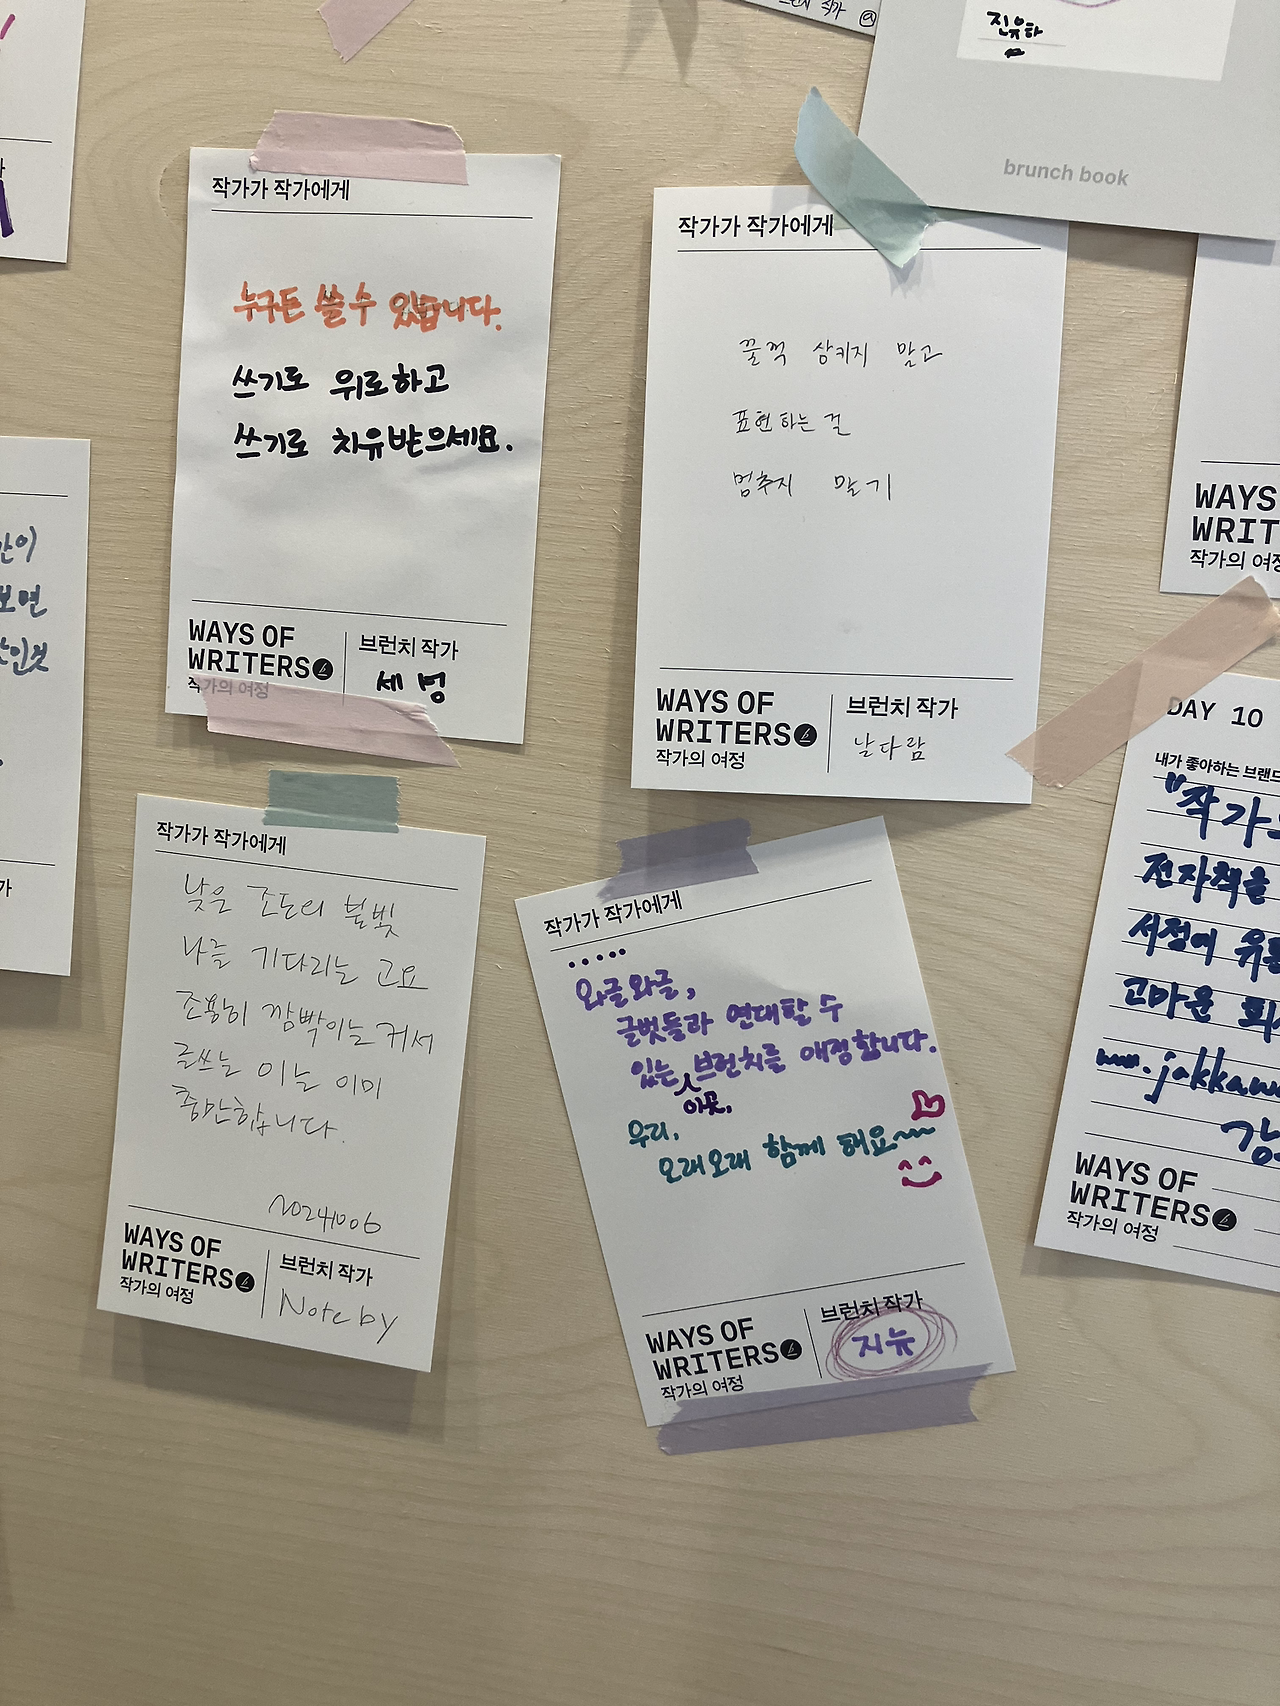 브런치 작가
진유하
brunch book
작가가 작가에게
누구든 쓸 수 있습니다.
쓰기로 위로하고
쓰기로 치유받으세요.
WAYS OF
WRITERS
작가의 여정
브런치 작가
세벙
작가가 작가에게
꿀꺽 삼키지 말고
표현하는 걸
멈추지 말기
WAYS OF
WRITERS
작가의 여정
브런치 작가
날다람
작가가 작가에게
낮은 조도의 불빛
나를 기다리는 고요
조용히 깜빡이는 커서
글쓰는 이는 이미
충만합니다.
20241006
WAYS OF
WRITERS
작가의 여정
브런치 작가
Note by
작가가 작가에게
.....
와글와글,
글벗들과 연대할 수
있는 브런치를 애정합니다.
이곳,
우리,
오래오래 함께 해요~~
WAYS OF
WRITERS
작가의 여정
브런치 작가
지뉴
간이
보면
WAYS
WRIT
작가의 여정
DAY 10
내가 좋아하는 브랜드
"작가의
전자책을
서점에 유통
고마운 회사
www.jakkawa
강
WAYS OF
WRITERS
작가의 여정